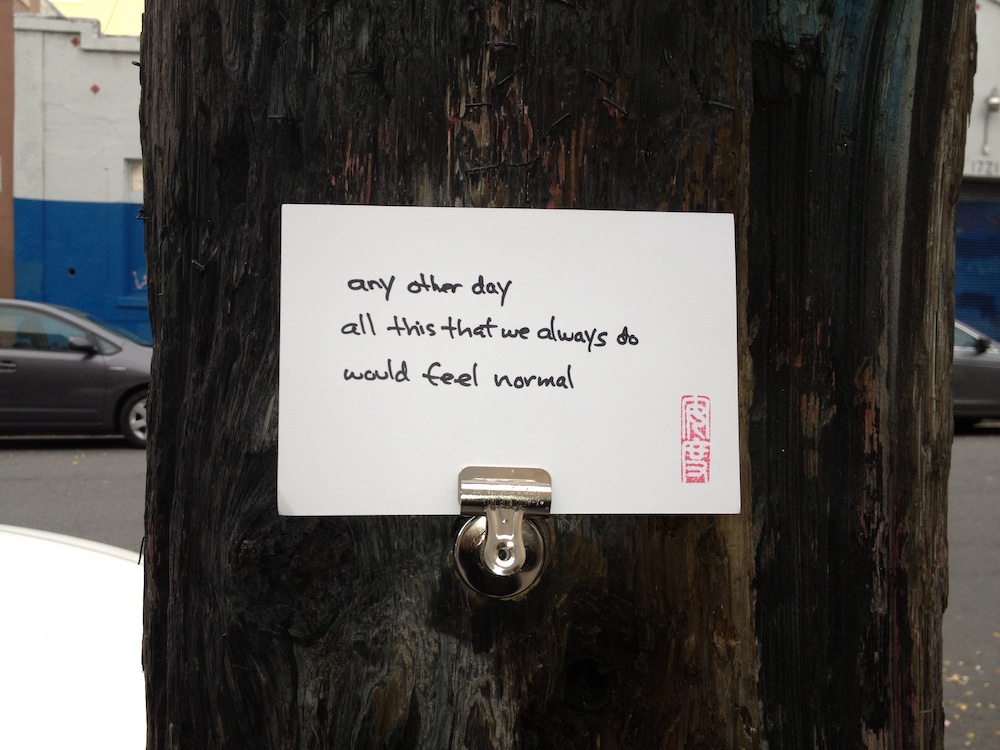 any other day
all this that we always do
would feel normal